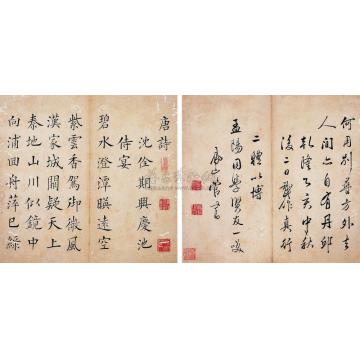 唐詩
沈佺期興慶池
侍宴
碧水澄潭暎遠空
紫雲香駕御微風
漢家城闕疑天上
秦地山川似鏡中
向浦回舟萍已綠
何用別尋方外去
人間亦自有丹邱
乾隆乙亥中秋
後二日戲作真行
二體以博
孟陽同學賢友一噱
山管